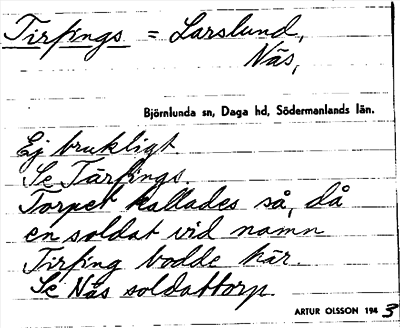 Tirfings = Larslund,
Näs,
Björnlunda sn, Daga hd, Södermanlands län.
Ej brukligt.
Se Tärfings
Torpet kallades så, då
en soldat vid namn
Tirfing bodde här.
Se Näs soldattorp.
ARTUR OLSSON 1943